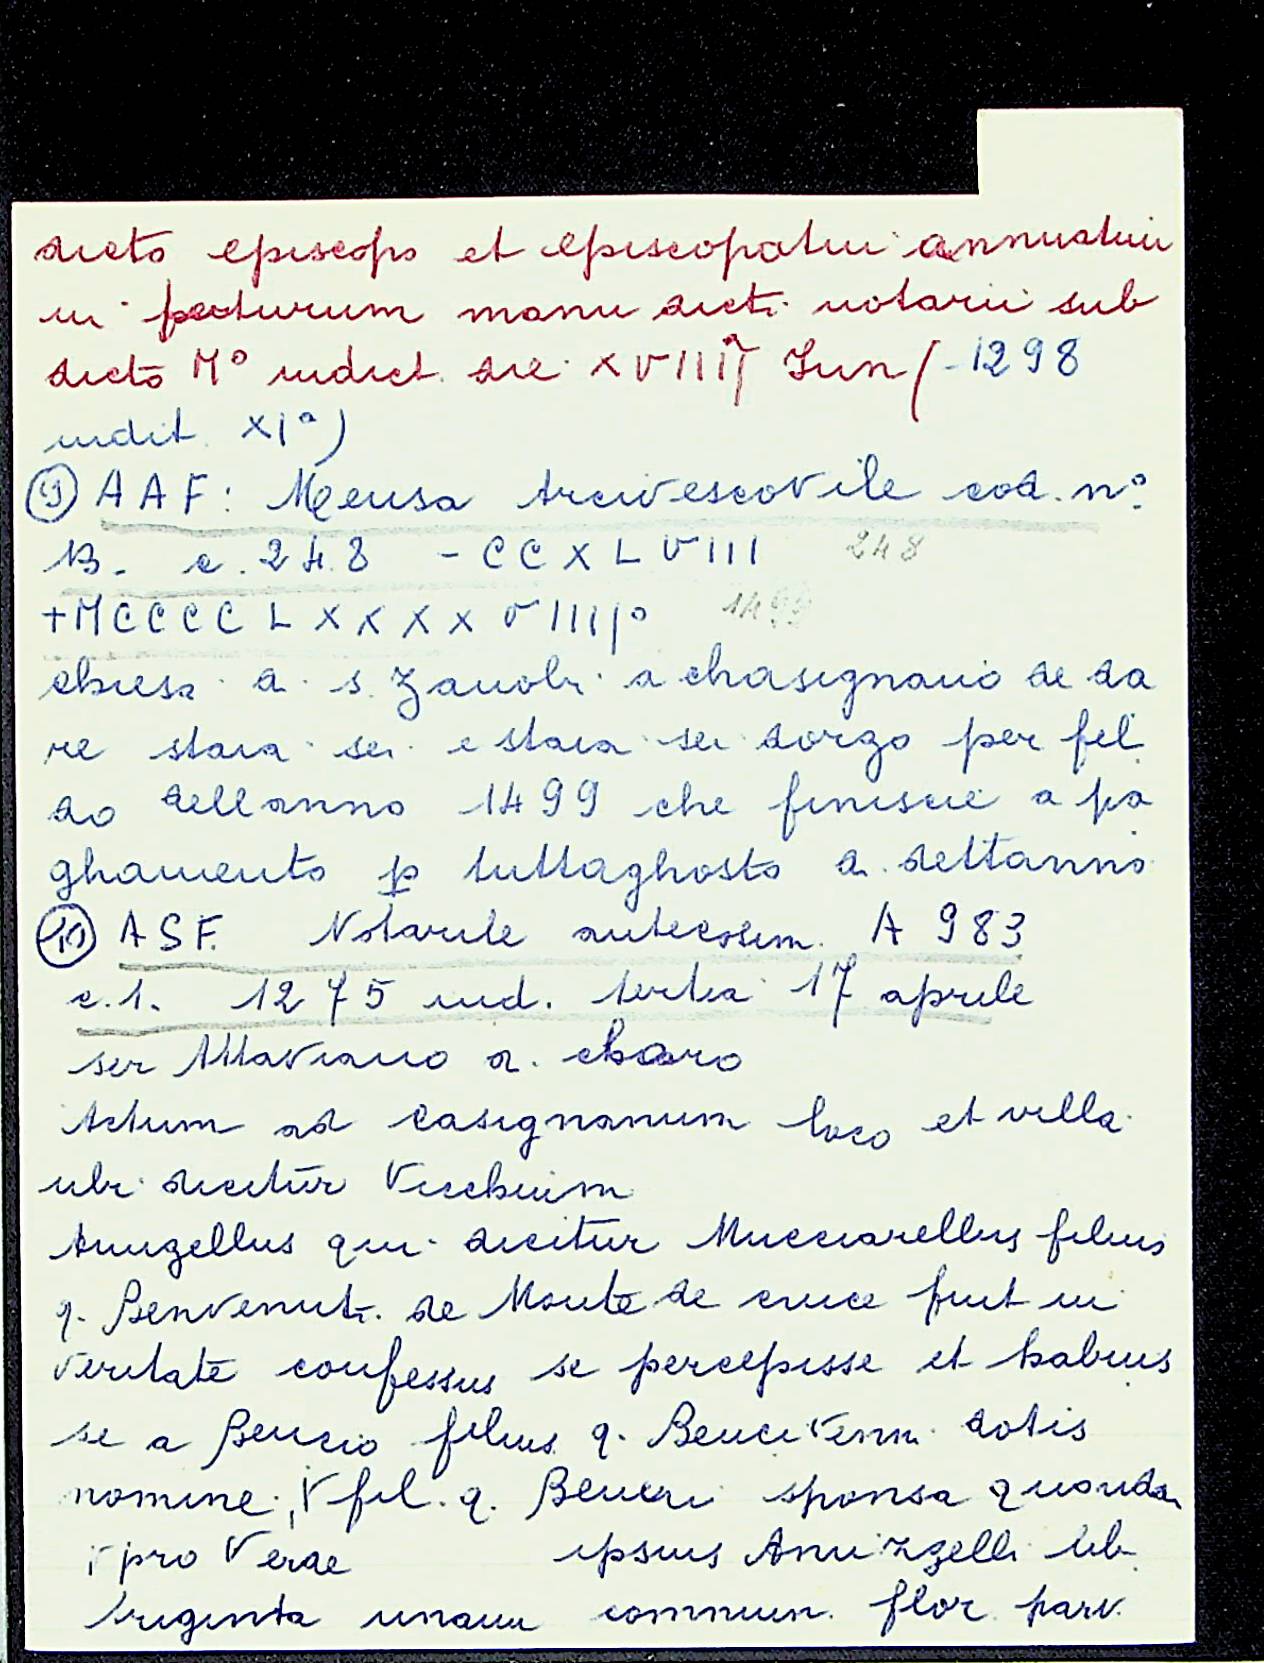 dicto episcopo et episcopatui annuatim
in perturum manu dicti notarii sub
dicto Mº indict. die XVIIIIª Jun (-1298
indit. XIª)
⑨ AAF: Mensa Arcivescovile cod. nº
13. c. 248 - CCXLVIII 248
+MCCCCLXXXXVIIIIº 1499
chiesa di s. Zanobi a chasignano de da
re staia sei e staia sei dorzo per fel
do dellanno 1499 che finiscie a pa
ghamento p tuttaghosto di dettanno
⑩ ASF. Notarile antecosim. A 983
c.1. 1275 ind. tertia 17 aprile
ser Attaviano di charo
Actum ad Casignanum loco et villa
ubi dicitur Vecchium
Anuzellus qui dicitur Mucciarellus filius
q. Benvenuti de Monte de cruce fuit in
veritate confessus se percepisse et habuis
se a Bencio filius q. Bencivenni dotis
nomine, V fil. q. Bencii sponsa quonda
V pro Verde ipsius Anuizzelli lib.
triginta unam commun. flor. parv.